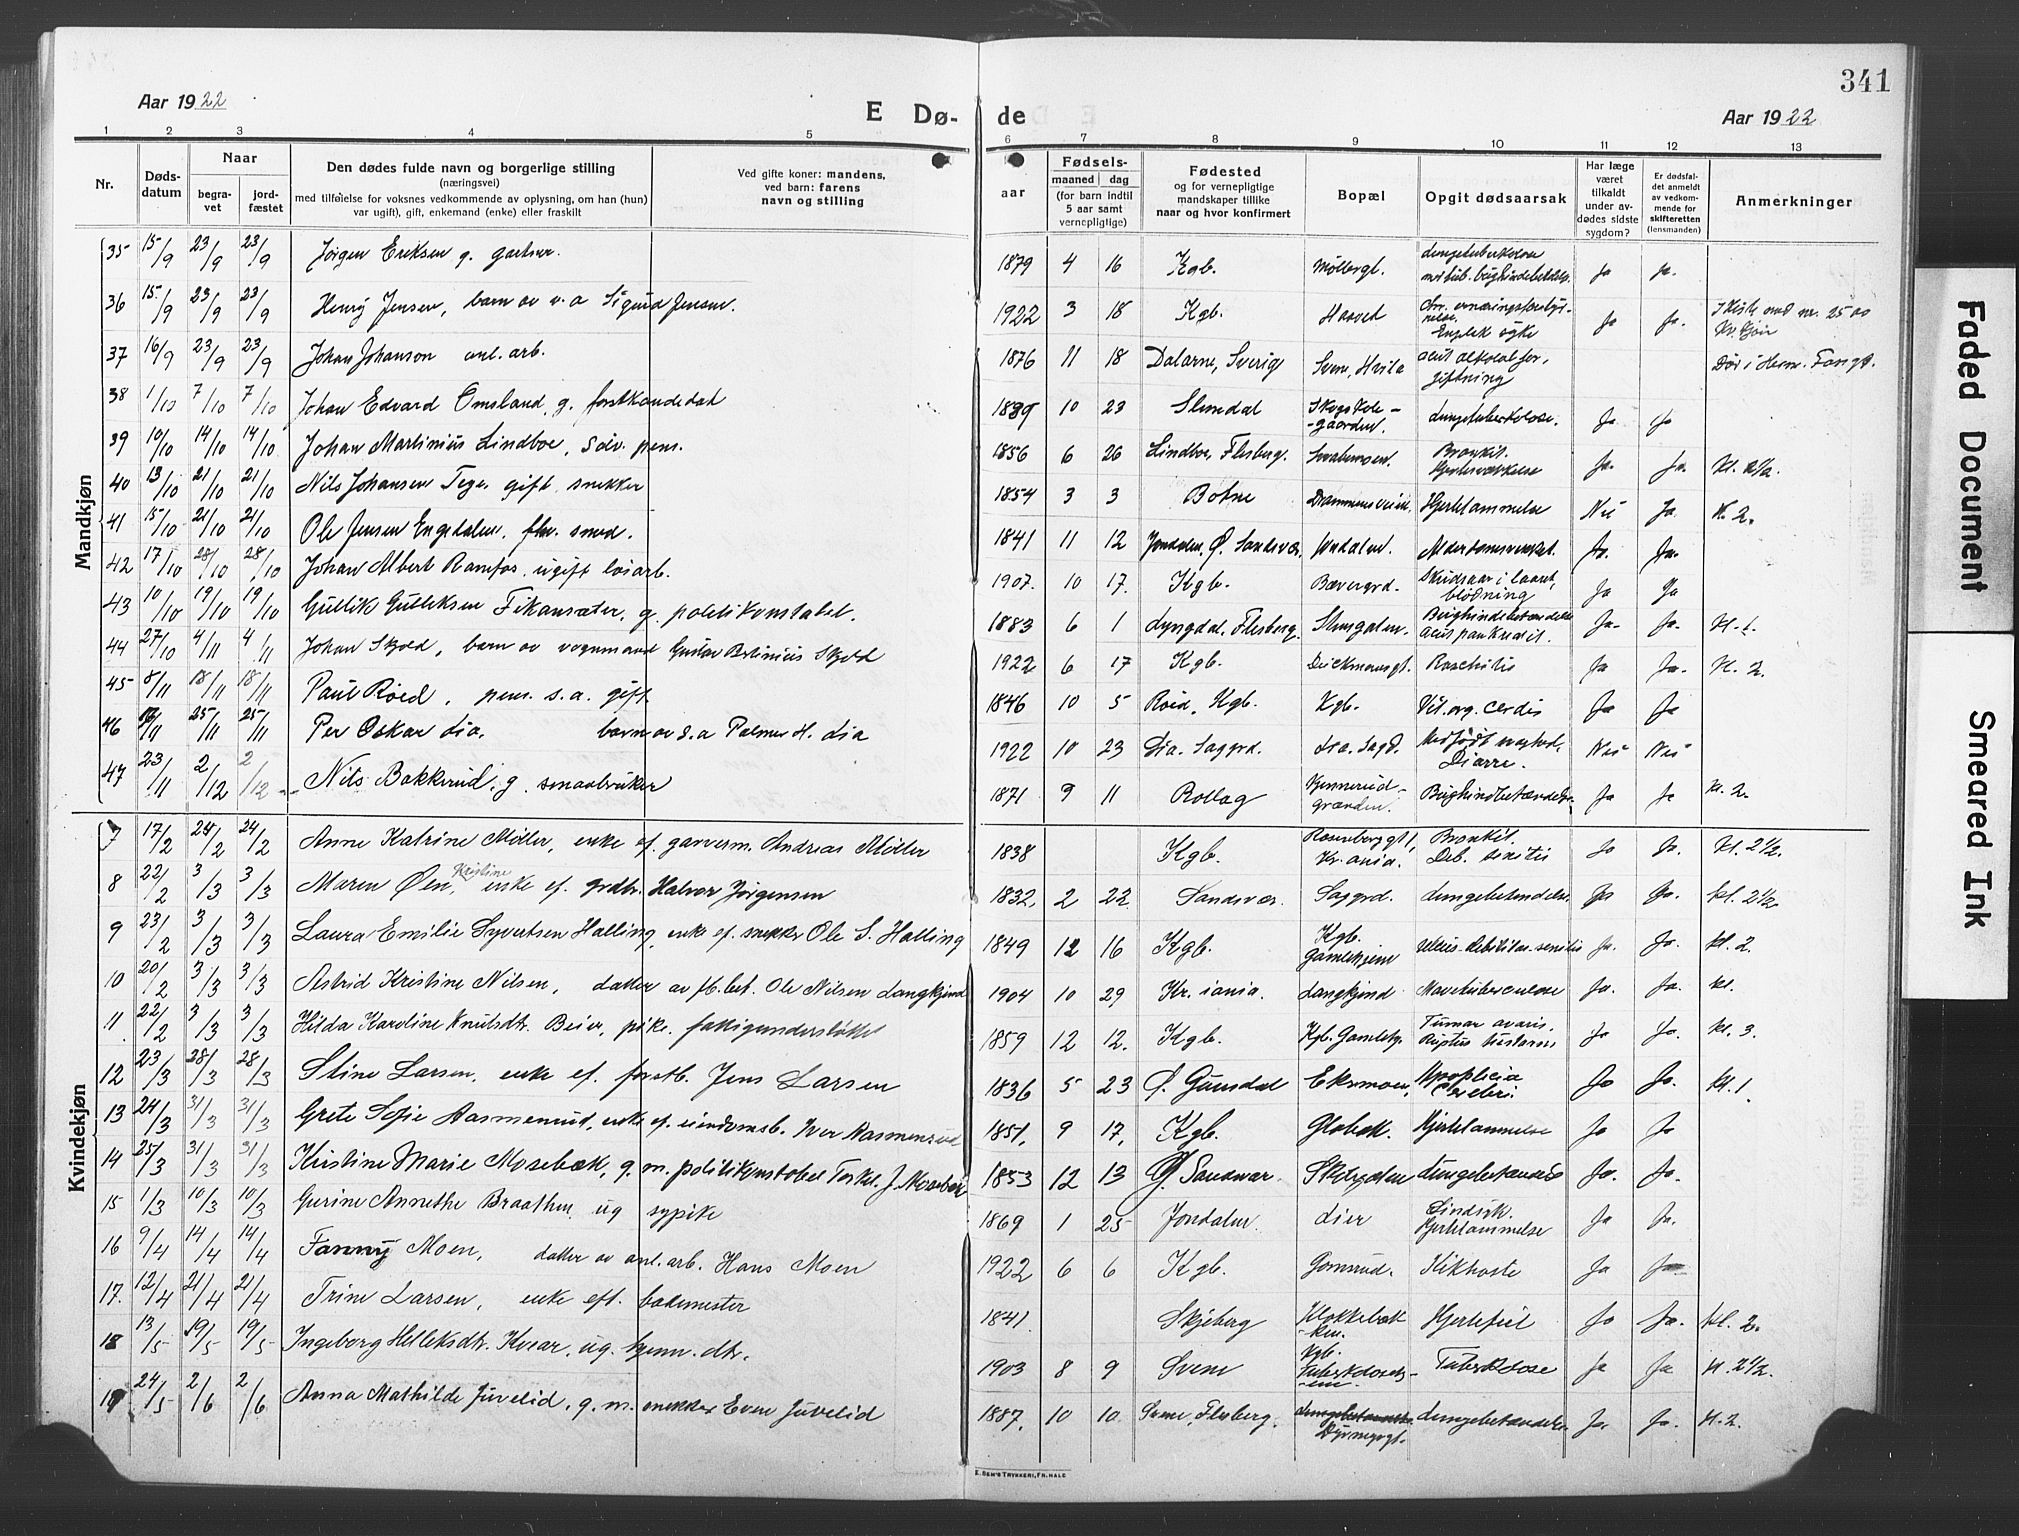 341
Aar 1922
E Dø-
de
Aar 1922
1 2 3 4 5 6 7 8 9 10 11 12 13
Nr.
Døds-
datum
Naar
begra-
vet
jord-
fæstet
Den dødes fulde navn og borgerlige stilling
(næringsvei)
med tilføielse for voksnes vedkommende av oplysning, om han (hun)
var ugift), gift, enkemand (enke) eller fraskilt
Ved gifte koner: mandens,
ved barn: farens
navn og stilling
Fødsels-
aar
maaned
dag
(for barn indtil
5 aar samt
vernepligtige)
Fødested
og for vernepligtige
mandskaper tillike
naar og hvor konfirmert
Bopæl
Opgit dødsaarsak
Har læge
været
tilkaldt
under av-
dødes sidste
sygdom?
Er dødsfal-
det anmeldt
av vedkom-
mende for
skifteretten
(lensmanden)
Anmerkninger
Mandkjøn
35 15/9 23/9 23/9 Jørgen Eriksen g. gartner. 1879 4 16 Kgb. Møllergt. Lungetuberkulose ja ja.
36 15/9 23/9 23/9 Henry Jensen, barn av v.a Sigurd Jensen. 1922 3 18 Kgb. Engelsk syke Ja Ja.
37 16/9 23/9 23/9 Johan Johanson anl. arb. 1876 11 18 Dalarne, Sverig Svene, Hvila acut alkoholfor,
giftning
38 1/10 7/10 7/10 Johan Edvard Omsland, g. forstkandedat 1889 10 23 Skogskole-
-gaarden. Lungetuberkulose. Ja Ja
39 10/10 14/10 14/10 Johan Martinius Lindboe, Sølv. pens. 1856 6 26 Lindboe, Flesberg. Bronkit. Ja. Ja. Kl. 2 1/2.
40 13/10 21/10 21/10 Nils Johansen Tege. gift, snekker 1854 3 3 Botne Drammensveien. Hjertelammelse Nei Ja. Kl. 2.
41 15/10 21/10 21/10 Ole Jensen Engedalen, fhv. smed. 1841 11 12 Jondalen, Ø. Sandsvær. Jondalen. Ja. Ja.
42 17/10 28/10 28/10 Johan Albert Ramfos, ugift løsarb. 1907. 10 17. Kgb. Bævergrd. Skudsaar i laaret,
blødning Ja Ja
43 10/10 19/10 19/10 Gullik Gulliksen Fikansæter, g. politikonstabel. 1883 6 1 Lyngdal, Flesberg. acut pankreatit. Ja. Ja. Kl. 1.
44 27/10 4/11 4/11 Johan Skjold, barn av vognmand Gustav Bertinius Skjold 1922 6 17 Kgb. Dickmansgt. Rachitis Ja Ja. Kl. 2.
45 8/11 18/11 18/11 Paul Røed, pens. s.a. gift 1846 10 5 Røid, Kgb. Kgb. Vit. org. cordis Ja Ja
46 25/11 25/11 Per Oskar Lia. barn av s.a Palmer H. Lia 1922 10 23 Lia. Saggrd. Lia. Sagd. Diarre. Nei Nei
47 23/11 2/12 2/12 Nils Bakkerud, g. smaabruker 1871 9 11 Rollag Ja Ja Kl. 2.
Kvindekjøn
7 17/2 24/2 24/2 Anne Katrine Møller, enke ef. garverm. Andreas Møller 1838 Kgb. Rosenberggt 1,
Kr.ania. Bronkit.
Deb. senilis Ja Ja. Kl. 2 1/2.
8 22/2 3/3 3/3 Maren Kristine Øen, enke ef. grdbr. Halvor Jørgensen 1832. 2 22. Sandsvær. Saggrd. Lungebetændelse Ja Ja. Kl. 2 1/2.
9 23/2 3/3 3/3 Laura Emilie Syvertsen Halling, enke ef. snekker Ole S. Halling 1849 12 16 Kgb. Kgb. senilis Ja. Ja. Kl. 2.
10 20/2 3/3 3/3 Astrid Kristine Nilsen, datter av fh.bet. Ole Nilsen Langkjend 1904 10 29 Kr.iania. Langkjend Mavetuberculose Ja. Ja. Kl.
11 22/2 3/3 3/3 Hilda Karoline Knutsdtr. Beier, pike. fattigunderstøttet 1859 12 12. Kgb. Kgb. Gamlekjr. Ja Ja. Kl. 3.
12 23/3 28/3 28/3 Stine Larsen, enke ef. forstb. Jens Larsen 1836 5 23 Eksmoen, Apoplexia Ja Ja. Kl. 1.
13 24/3 31/3 31/3 Grete Sofie Aasmenrud, enke ef. eiendomsb. Iver Aasmenrud 1851. 9 17. Kgb. Glabak. Hjertelammelse Ja Ja
14 25/3 31/3 31/3 Kristine Marie Mosebæk, g. m. politikonstabel Torkel J. Mosebæk 1853 12 13 Ø. Sandsvær. Lungebetændelse Ja. Ja.
15 1/3 10/3 10/3 Gurine Annethe Braathen, ug sypike 1869 1 25 Jondalen. Lier Hjertelammelse Ja Ja.
16 9/4 14/4 14/4 Fanny Moen, datter av anl.arb. Hans Moen 1922 6 6 Kgb. Gomsrud. Kikhoste Ja Ja
17. 12/4 21/4 21/4 Trine Larsen, enke eft. bademester 1841. Skjeberg Klokkerbak-
-ken. Hjertefeil Ja Ja. Kl. 2.
18 13/5 19/5 19/5 Ingeborg Helleksdtr. ug. hjem. dtr. 1903 8 9 Svene Kgb. Tuberkulose Ja Ja Kl. 2 1/2.
19 24/5 2/6 2/6 Anna Mathilde Juvelid, g. m. snekker Even Juvelid 1887. 10 10. Svene, Flesberg. Dyrmyrgt. Lungebetændelse Ja. Ja. Kl. 2.
E. SEM'S TRYKKERI, FR.HALD
Faded Document
Smeared Ink